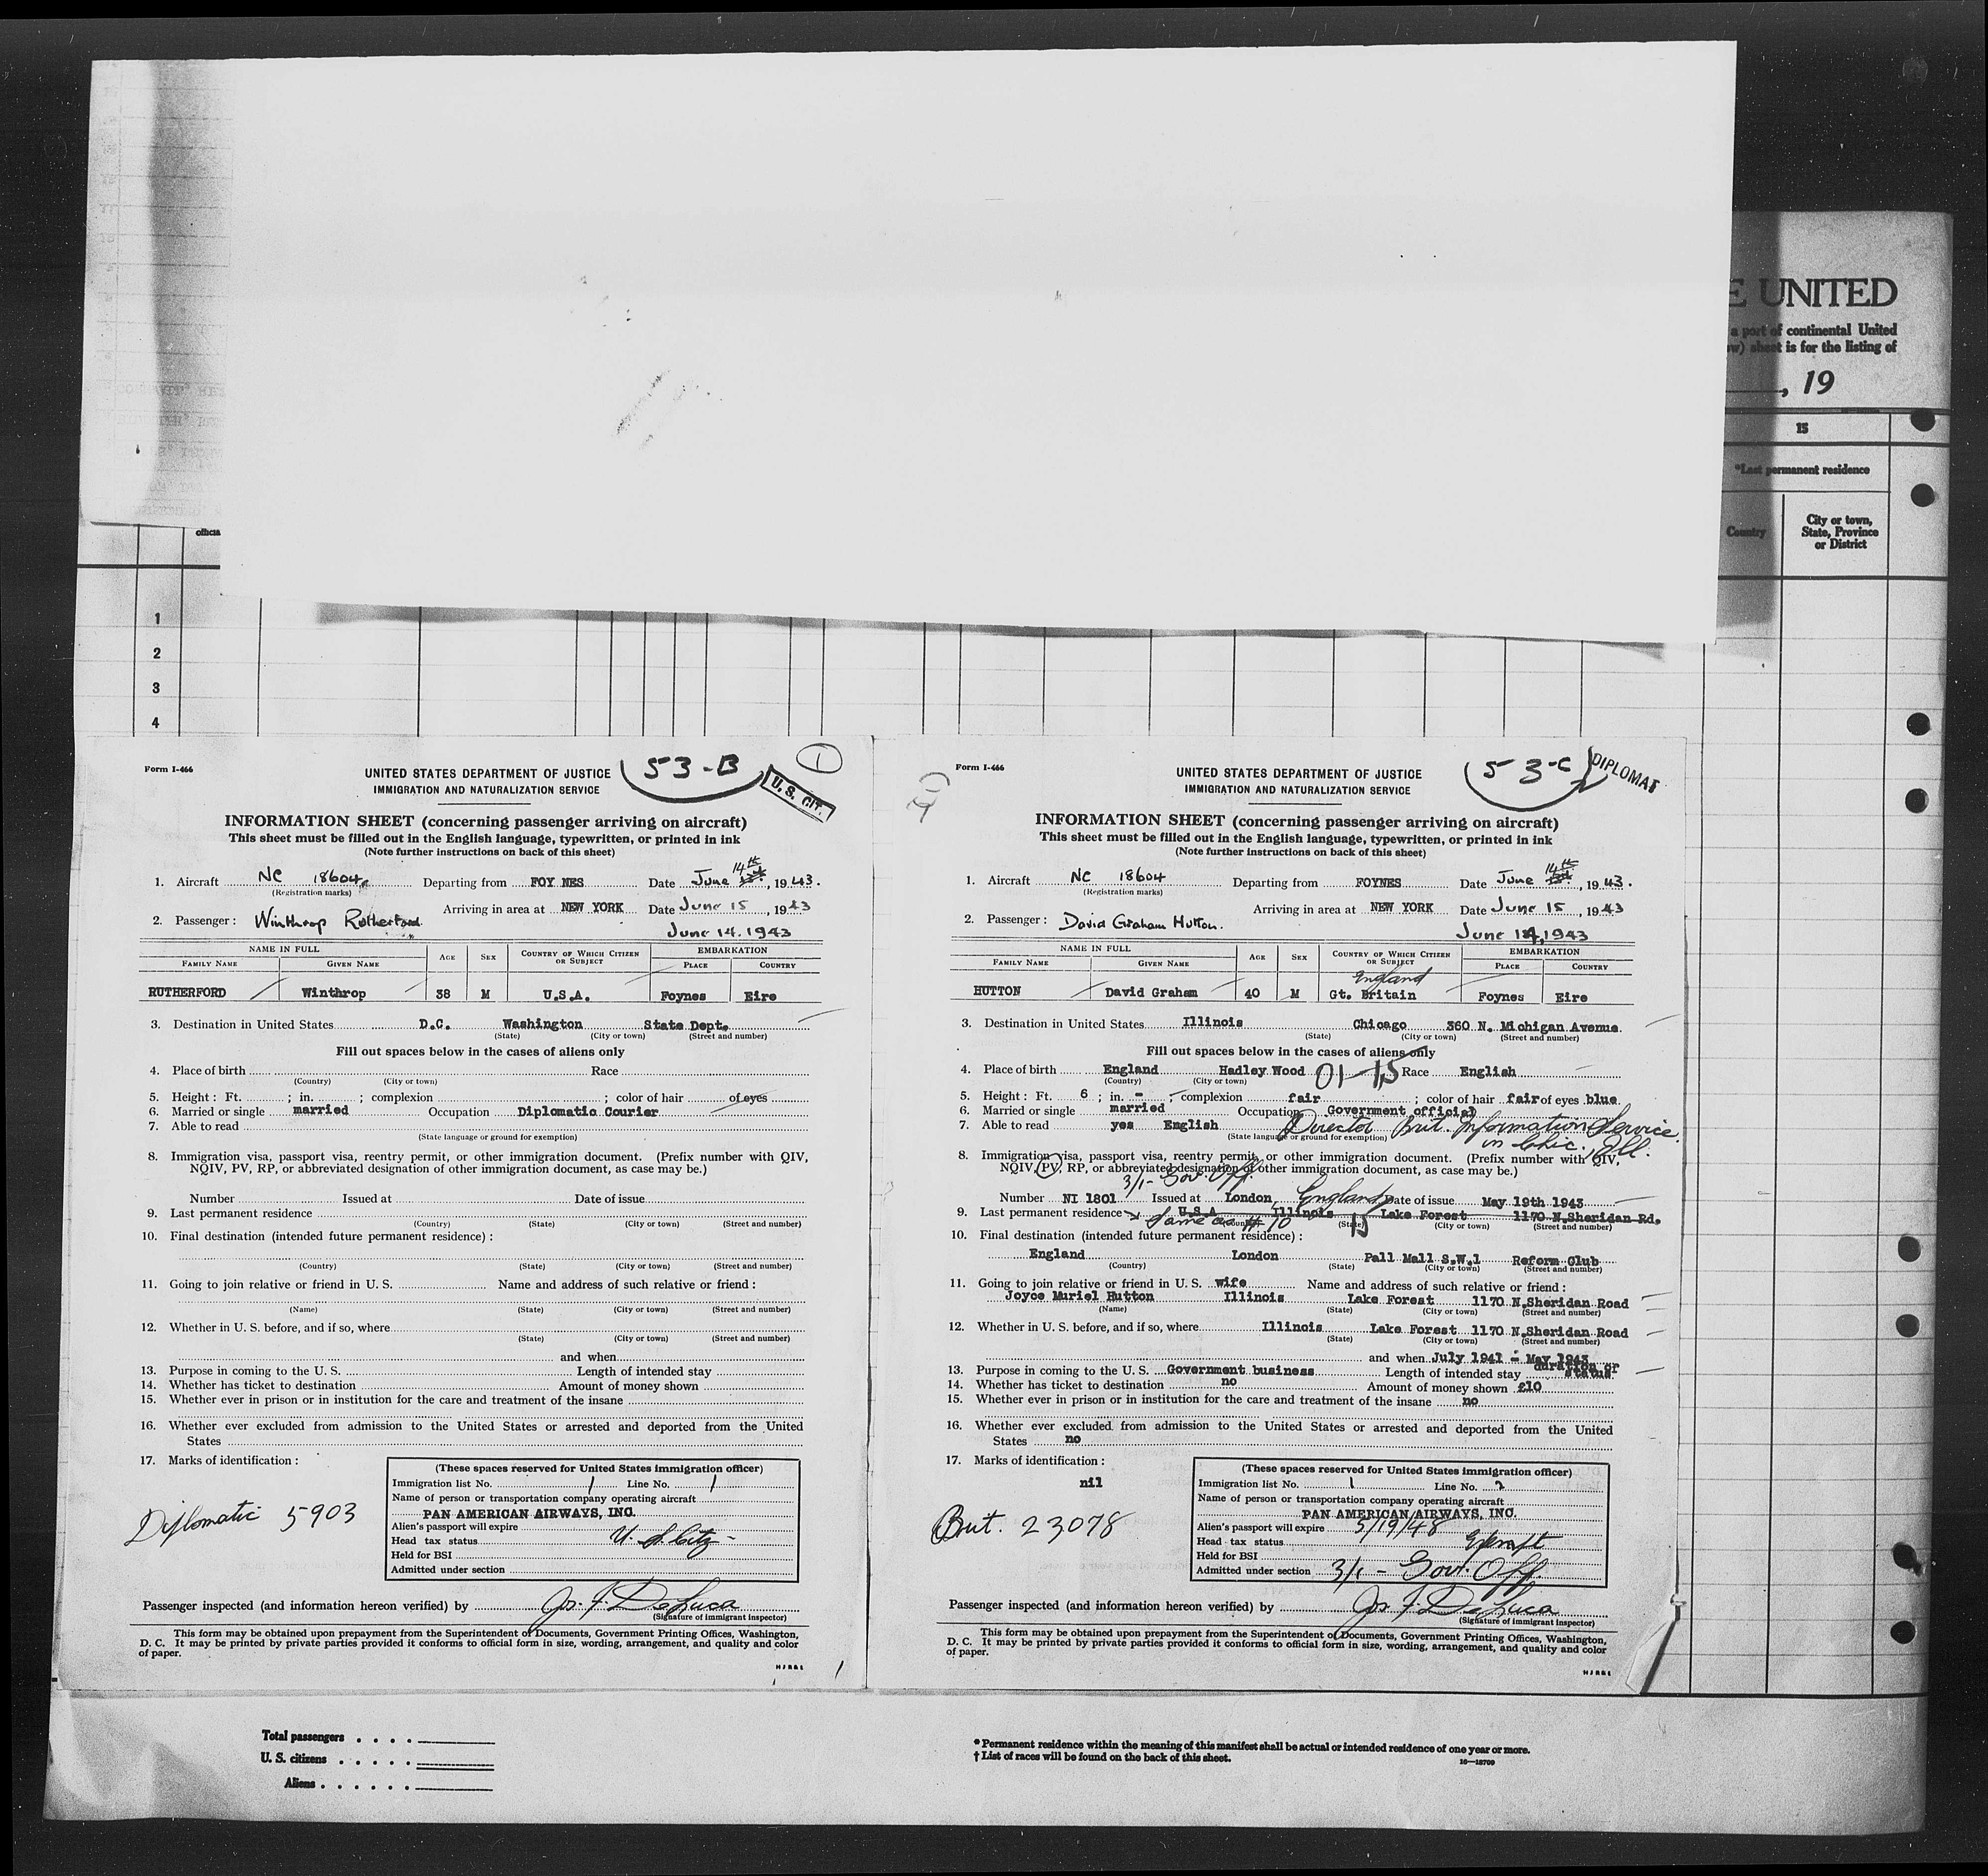 E UNITED
a port of continental United
sheet is for the listing of
, 19
15
*Last permanent residence
Country
City or town, State, Province or District
1
2
3
4
Form I-466
53-B
1
U.S. CIT.
UNITED STATES DEPARTMENT OF JUSTICE
IMMIGRATION AND NATURALIZATION SERVICE
INFORMATION SHEET (concerning passenger arriving on aircraft)
This sheet must be filled out in the English language, typewritten, or printed in ink
(Note further instructions on back of this sheet)
1. Aircraft NC 18604 Departing from FOYNES Date June 14th, 1943.
(Registration marks)
Arriving in area at NEW YORK Date June 15, 1943
2. Passenger: Winthrop Rutherford
June 14. 1943
NAME IN FULL AGE SEX COUNTRY OF WHICH CITIZEN OR SUBJECT EMBARKATION
FAMILY NAME GIVEN NAME PLACE COUNTRY
RUTHERFORD Winthrop 38 M U.S.A. Foynes Eire
3. Destination in United States D.C. Washington State Dept.
(State) (City or town) (Street and number)
Fill out spaces below in the cases of aliens only
4. Place of birth Race
(Country) (City or town)
5. Height: Ft. ; in. ; complexion ; color of hair of eyes
6. Married or single married Occupation Diplomatic Courier
7. Able to read
(State language or ground for exemption)
8. Immigration visa, passport visa, reentry permit, or other immigration document. (Prefix number with QIV,
NQIV, PV, RP, or abbreviated designation of other immigration document, as case may be.)
Number Issued at Date of issue
9. Last permanent residence
(Country) (State) (City or town) (Street and number)
10. Final destination (intended future permanent residence):
(Country) (State) (City or town) (Street and number)
11. Going to join relative or friend in U. S. Name and address of such relative or friend:
(Name) (State) (City or town) (Street and number)
12. Whether in U. S. before, and if so, where
(State) (City or town) (Street and number)
and when
13. Purpose in coming to the U. S. Length of intended stay
14. Whether has ticket to destination Amount of money shown
15. Whether ever in prison or in institution for the care and treatment of the insane
16. Whether ever excluded from admission to the United States or arrested and deported from the United
States
17. Marks of identification:
Diplomatic 5903
(These spaces reserved for United States immigration officer)
Immigration list No. 1 Line No. 1
Name of person or transportation company operating aircraft
PAN AMERICAN AIRWAYS, INC.
Alien's passport will expire
Head tax status U. S. Citz -
Held for BSI
Admitted under section
Passenger inspected (and information hereon verified) by Jos. F. DeLuca
(Signature of immigrant inspector)
This form may be obtained upon prepayment from the Superintendent of Documents, Government Printing Offices, Washington,
D. C. It may be printed by private parties provided it conforms to official form in size, wording, arrangement, and quality and color
of paper.
Form I-466
53-C
DIPLOMAT
UNITED STATES DEPARTMENT OF JUSTICE
IMMIGRATION AND NATURALIZATION SERVICE
INFORMATION SHEET (concerning passenger arriving on aircraft)
This sheet must be filled out in the English language, typewritten, or printed in ink
(Note further instructions on back of this sheet)
1. Aircraft NC 18604 Departing from FOYNES Date June 14th, 1943.
(Registration marks)
Arriving in area at NEW YORK Date June 15, 1943
2. Passenger: David Graham Hutton.
June 14, 1943
NAME IN FULL AGE SEX COUNTRY OF WHICH CITIZEN OR SUBJECT EMBARKATION
FAMILY NAME GIVEN NAME PLACE COUNTRY
England
HUTTON David Graham 40 M Gt. Britain Foynes Eire
3. Destination in United States Illinois Chicago 360 N. Michigan Avenue.
(State) (City or town) (Street and number)
Fill out spaces below in the cases of aliens only
4. Place of birth England Hadley Wood 01-15 Race English
(Country) (City or town)
5. Height: Ft. 6 ; in. - ; complexion fair ; color of hair fair of eyes blue
6. Married or single married Occupation Government official
7. Able to read yes English Director Brit. Information Service
(State language or ground for exemption) in Chic., Ill.
8. Immigration visa, passport visa, reentry permit, or other immigration document. (Prefix number with QIV,
NQIV, PV, RP, or abbreviated designation of other immigration document, as case may be.)
3/1- Gov. Off.
Number NI 1801 Issued at London England Date of issue May 19th 1943
9. Last permanent residence U.S.A Illinois Lake Forest 1170 N.Sheridan Rd.
Same as # 10 15
(Country) (State) (City or town) (Street and number)
10. Final destination (intended future permanent residence):
England London Pall Mall S.W.1 Reform Club
(Country) (State) (City or town) (Street and number)
11. Going to join relative or friend in U. S. wife Name and address of such relative or friend:
Joyce Muriel Hutton Illinois Lake Forest 1170 N.Sheridan Road
(Name) (State) (City or town) (Street and number)
12. Whether in U. S. before, and if so, where Illinois Lake Forest 1170 N.Sheridan Road
(State) (City or town) (Street and number)
and when July 1941 - May 1943
13. Purpose in coming to the U. S. Government business Length of intended stay duration of status
14. Whether has ticket to destination no Amount of money shown £10
15. Whether ever in prison or in institution for the care and treatment of the insane no
16. Whether ever excluded from admission to the United States or arrested and deported from the United
States no
17. Marks of identification:
nil
Brit. 23078
(These spaces reserved for United States immigration officer)
Immigration list No. 1 Line No. 2
Name of person or transportation company operating aircraft
PAN AMERICAN AIRWAYS, INC.
Alien's passport will expire 5/19/48
Head tax status Exempt
Held for BSI
Admitted under section 3/1 - Gov. Off.
Passenger inspected (and information hereon verified) by Jos. F. DeLuca
(Signature of immigrant inspector)
This form may be obtained upon prepayment from the Superintendent of Documents, Government Printing Offices, Washington,
D. C. It may be printed by private parties provided it conforms to official form in size, wording, arrangement, and quality and color
of paper.
Total passengers
U. S. citizens
Aliens
* Permanent residence within the meaning of this manifest shall be actual or intended residence of one year or more.
† List of races will be found on the back of this sheet.
16—18709